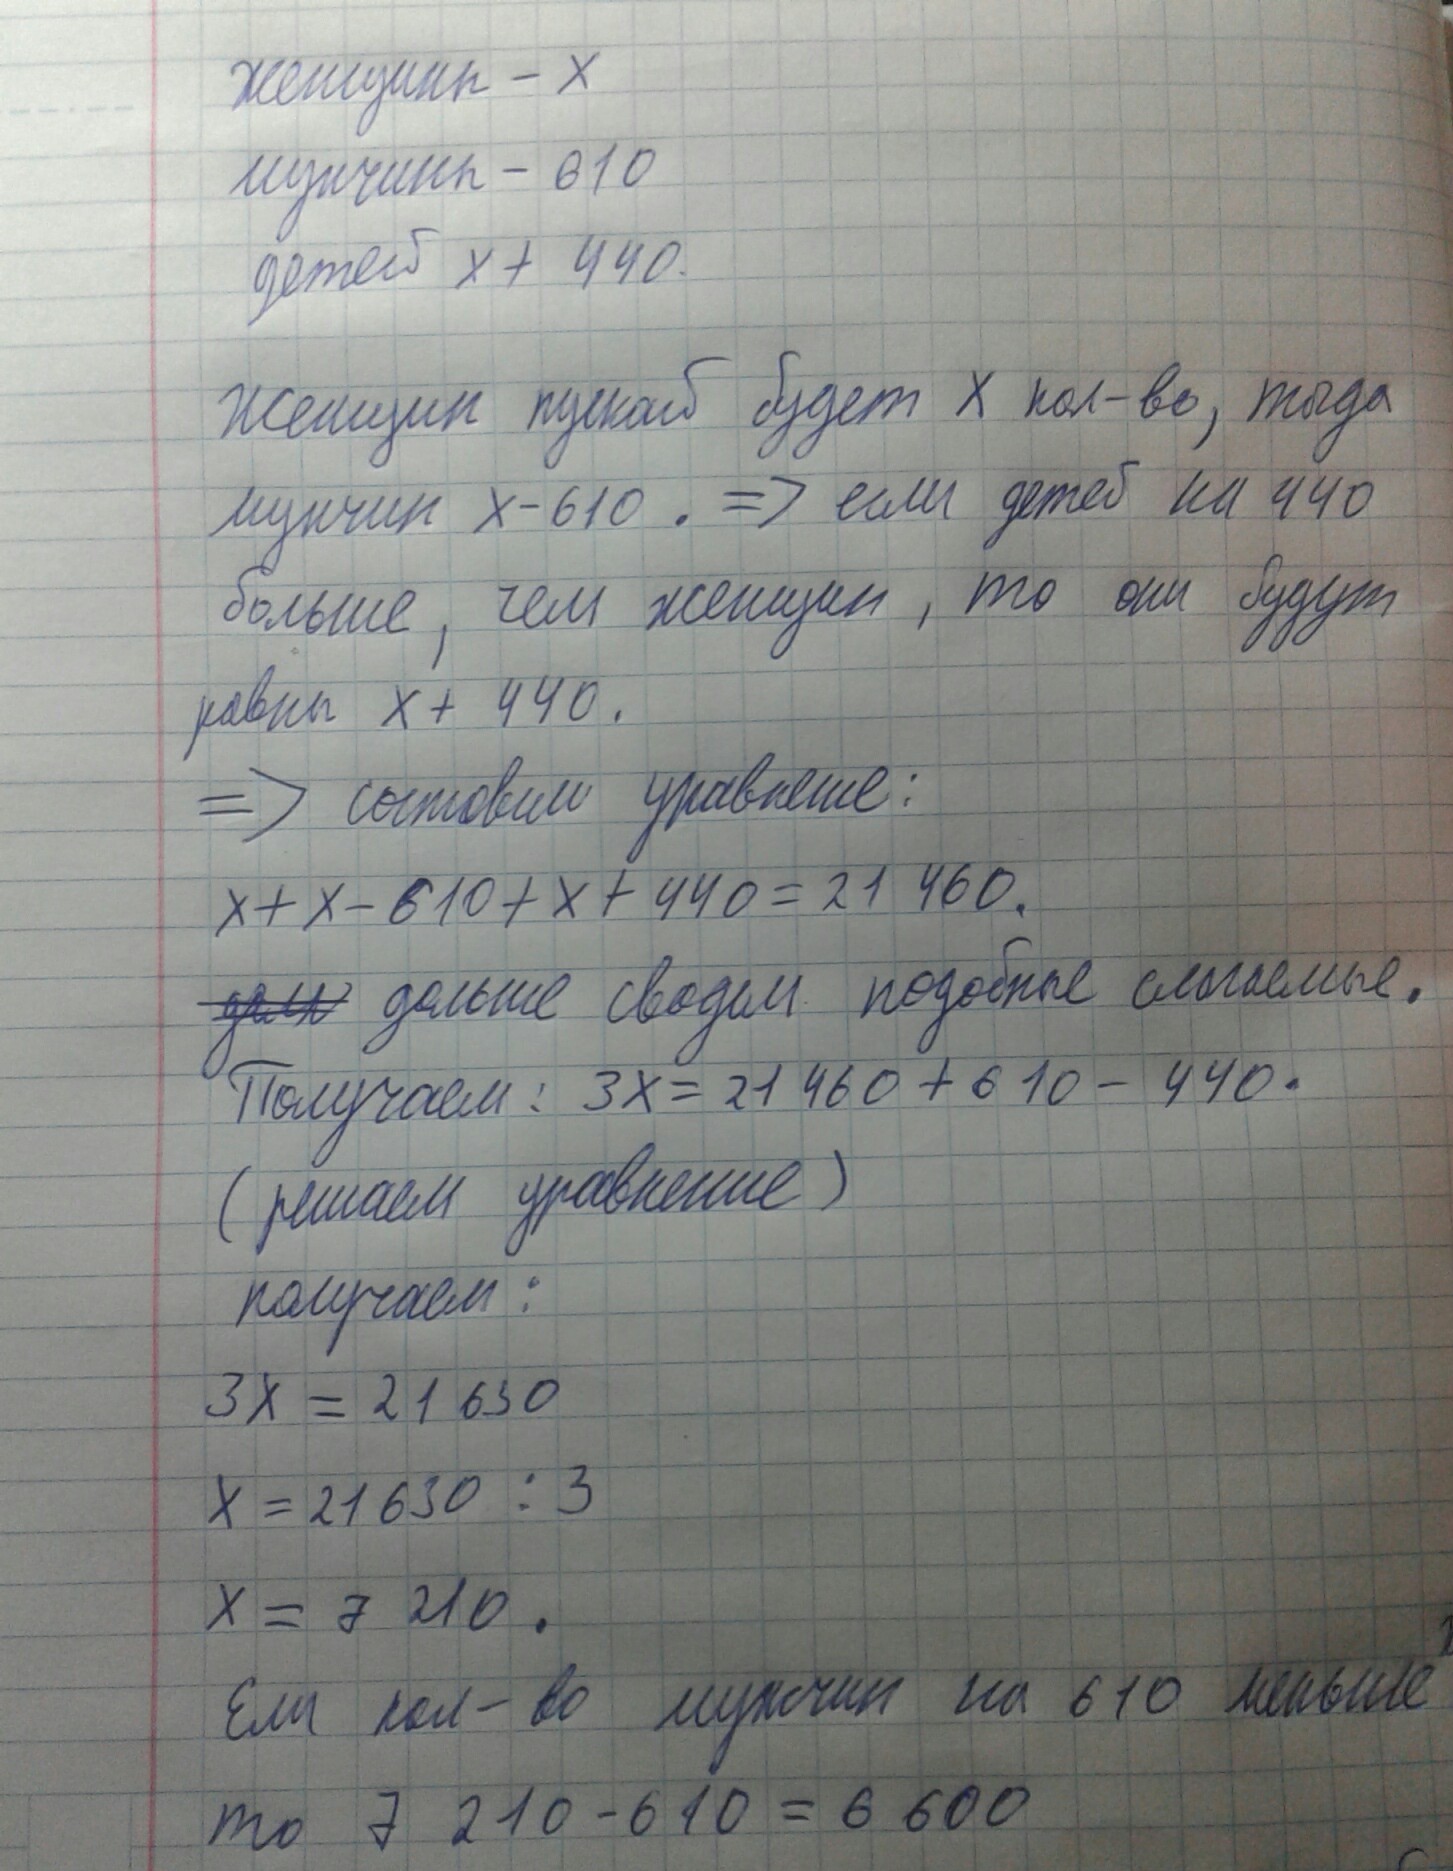 женщины - х
мужчины - 610
детей х + 440.
Женщин пускай будет х кол-во, тогда
мужчин х-610. => если детей на 440
больше, чем женщин, то они будут
равны х + 440.
=> состовим уравнение:
х+х-610+х+440=21 460.
дальше сводим подобные слагаемые.
Получаем: 3х=21 460+610-440.
(решаем уравнение)
получаем:
3х = 21 630
х = 21 630 : 3
х = 7 210.
Если кол-во мужчин на 610 меньше
то 7 210-610 = 6 600